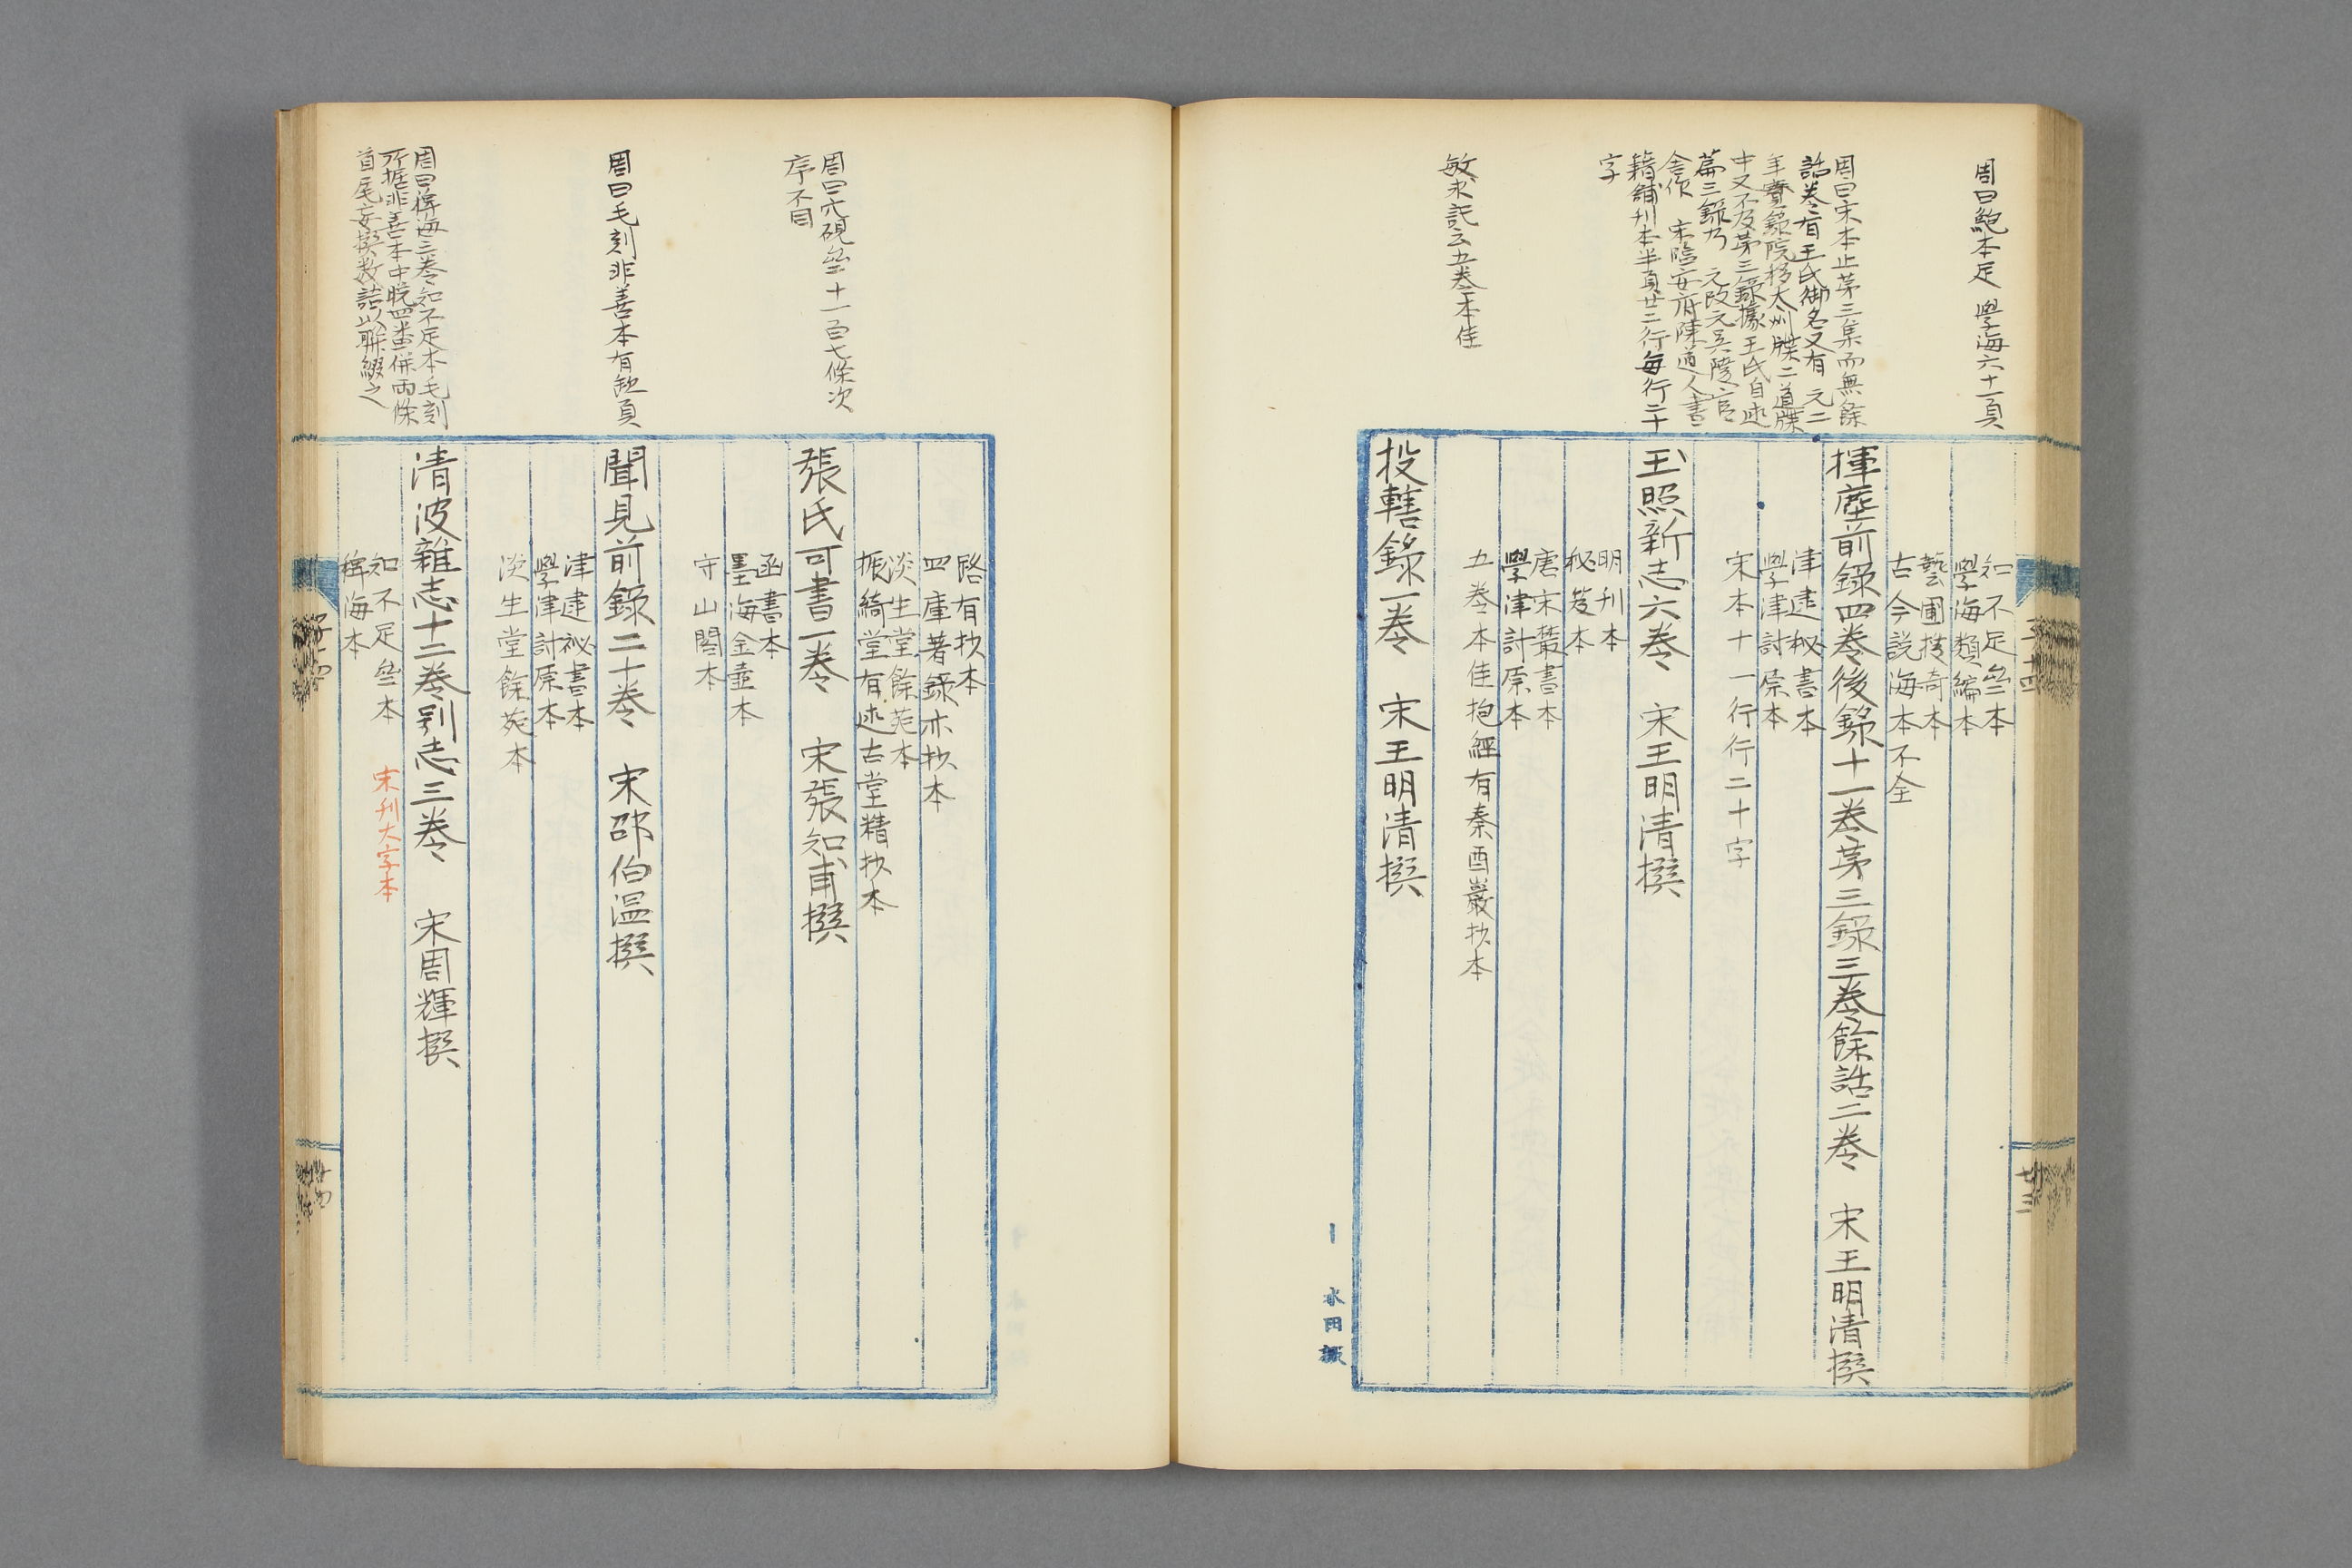 周曰鮑本足 學海六十二頁
周曰宋本止第三集而無餘
話卷首有王氏御名又有 元二
年實錄院移大州牒二道牒
中又不及第三錄據王氏自述
篇三錄乃 元改元吳陵官
舍作 宋臨安府陳道人書
籍鋪刊本半頁廿二行每行二十
字
敏求記云五卷本佳
知不足齋本
學海類編本
藝圃搜奇本
古今説海本不全
揮麈前錄四卷後錄十一卷第三錄三卷餘話二卷 宋王明清撰
津逮秘書本
學津討原本
宋本十一行行二十字
玉照新志六卷 宋王明清撰
明刊本
秘笈本
唐宋叢書本
學津討原本
五卷本佳抱經有秦酉巖抄本
投轄錄一卷 宋王明清撰
廿三
周曰穴硯齋十一百七條次
序不同
周曰毛刻非善本有缺頁
周曰稗海三卷知不足本毛刻
所據非善本中脱四葉併兩條
首尾妄撰數語以聯綴之
路有抄本
四庫著錄亦抄本
淡生堂餘苑本
振綺堂有述古堂精抄本
張氏可書一卷 宋張知甫撰
函書本
墨海金壺本
守山閣本
聞見前錄二十卷 宋邵伯溫撰
津逮祕書本
學津討原本
淡生堂餘苑本
清波雜志十二卷別志三卷 宋周輝撰
知不足齋本 宋刊大字本
稗海本